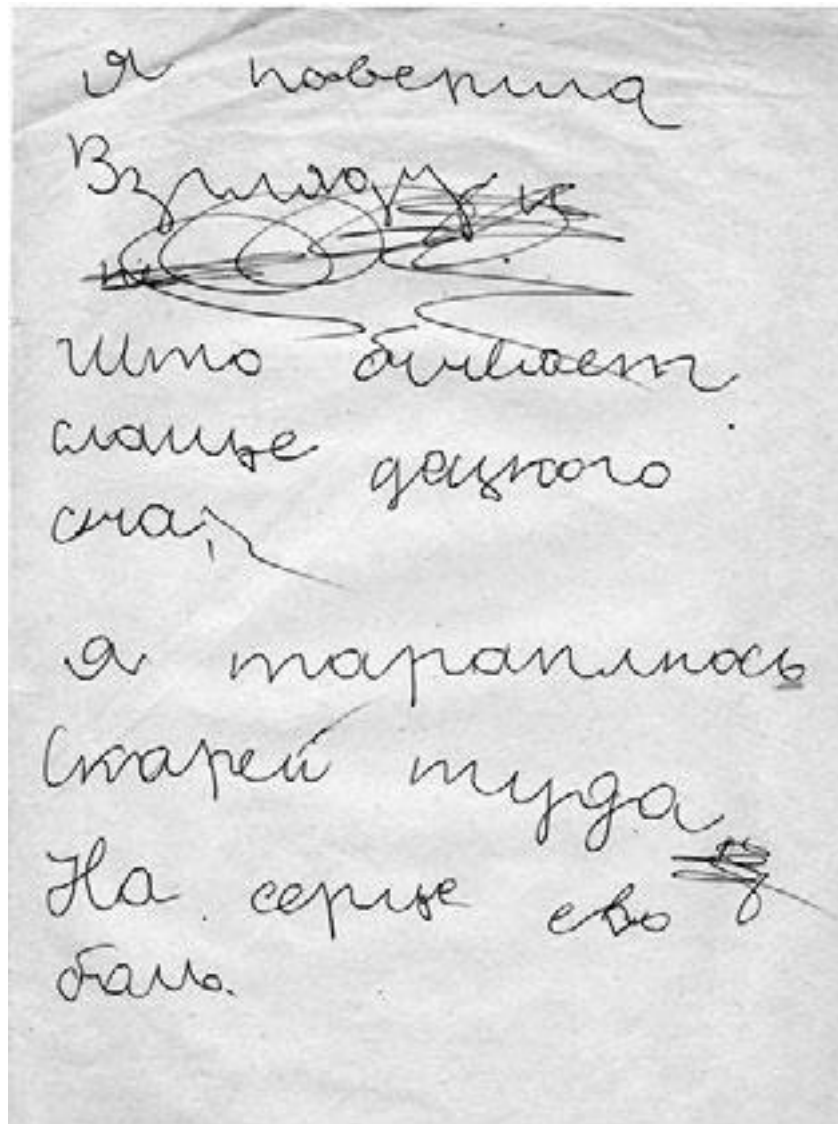 я поверила
Взгляду и
Што бывает
слаще децкого
сна,
я тараплюсь
Скарей туда
На серце ево
баль.